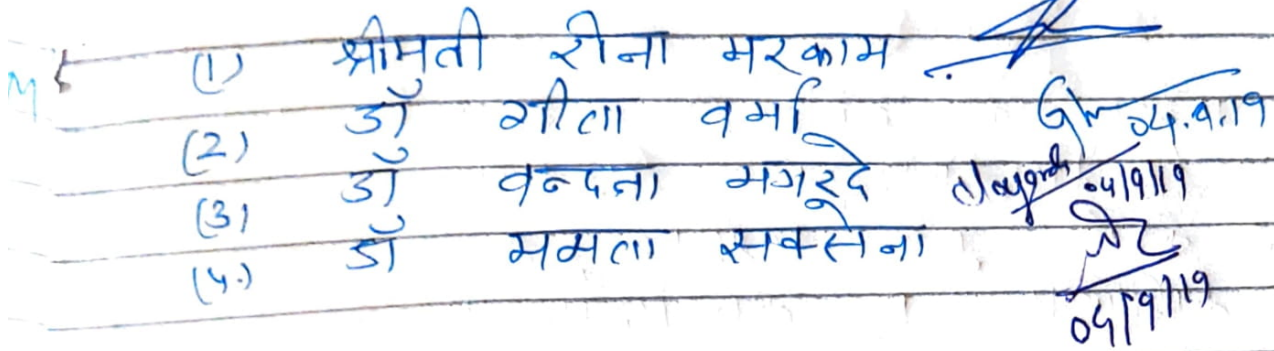 (1) श्रीमती रीना मरकाम
(2) डॉ गीता वर्मा 04.9.19
(3) डॉ वन्दना मगरदे 04/9/19
(4.) डॉ ममता सक्सेना
04/9/19